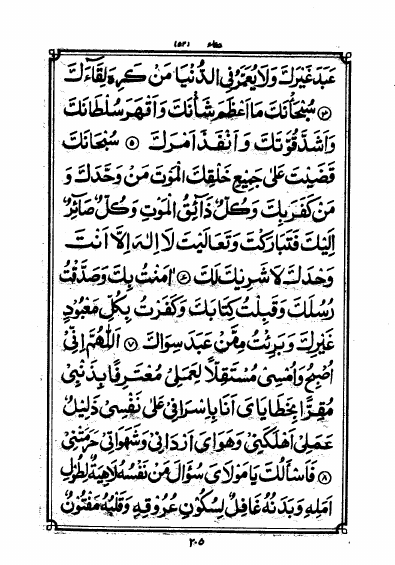 دعاء (٥٢)
عَبَدَ غَيْرَكَ وَلَا يُعَمَّرُ فِي الدُّنْيَا مَنْ كَرِهَ لِقَاءَكَ
④ سُبْحَانَكَ مَا اَعْظَمَ شَأْنَكَ وَاَقْهَرَ سُلْطَانَكَ
وَاَشَدَّ قُوَّتَكَ وَاَنْفَذَ اَمْرَكَ ⑤ سُبْحَانَكَ
قَضَيْتَ عَلَى جَمِيعِ خَلْقِكَ الْمَوْتَ مَنْ وَحَّدَكَ وَ
مَنْ كَفَرَ بِكَ وَكُلٌّ ذَائِقُ الْمَوْتِ وَكُلٌّ صَائِرٌ
اِلَيْكَ فَتَبَارَكْتَ وَتَعَالَيْتَ لَا اِلٰهَ اِلَّا اَنْتَ
وَحْدَكَ لَا شَرِيكَ لَكَ ⑥ اٰمَنْتُ بِكَ وَصَدَّقْتُ
رُسُلَكَ وَقَبِلْتُ كِتَابَكَ وَكَفَرْتُ بِكُلِّ مَعْبُودٍ
غَيْرِكَ وَبَرِئْتُ مِمَّنْ عَبَدَ سِوَاكَ ⑦ اَللّٰهُمَّ اِنِّي
اُصْبِحُ وَاُمْسِي مُسْتَقِلًّا لِعَمَلِي مُعْتَرِفًا بِذَنْبِي
مُقِرًّا بِخَطَايَايَ اَنَا بِاِسْرَافِي عَلَى نَفْسِي ذَلِيلٌ
عَمَلِي اَهْلَكَنِي وَهَوَايَ اَرْدَانِي وَشَهَوَاتِي حَرَمَتْنِي
⑧ فَاَسْأَلُكَ يَا مَوْلَايَ سُؤَالَ مَنْ نَفْسُهُ لَاهِيَةٌ لِطُولِ
اَمَلِهِ وَبَدَنُهُ غَافِلٌ لِسُكُونِ عُرُوقِهِ وَقَلْبُهُ مَفْتُونٌ
٢٠٥